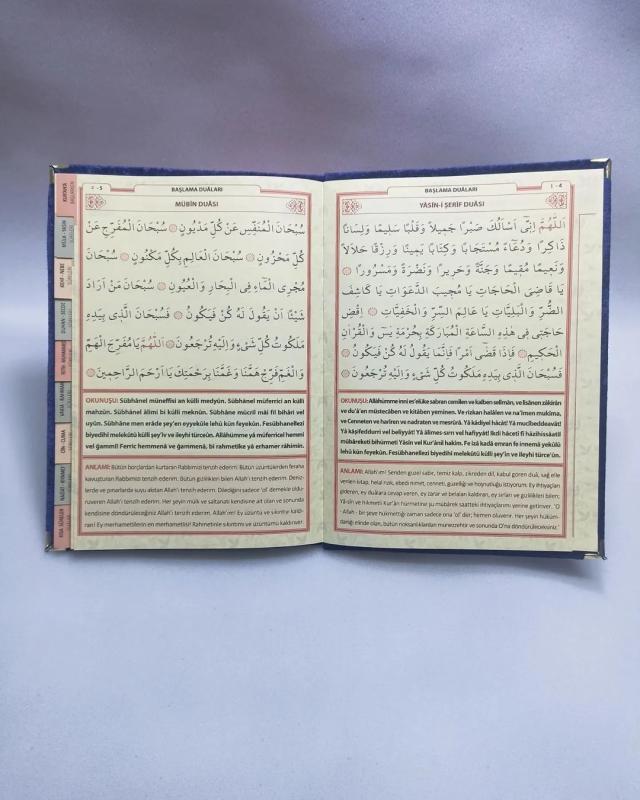 BAŞLAMA DUÂLARI
٤ - 4
YÂSİN-İ ŞERİF DUÂSI
اَللّٰهُمَّ اِنّٖى اَسْاَلُكَ صَبْرًا جَمٖيلًا وَقَلْبًا سَلٖيمًا وَلِسَانًا
ذَاكِرًا وَدُعَاءً مُسْتَجَابًا وَكِتَابًا يَمٖينًا وَرِزْقًا حَلَالًا
وَنَعٖيمًا مُقٖيمًا وَجَنَّةً وَحَرٖيرًا وَنَضْرَةً وَمَسْرُورًا
يَا قَاضِىَ الْحَاجَاتِ يَا مُجٖيبَ الدَّعَوَاتِ يَا كَاشِفَ
الضُّرِّ وَالْبَلِيَّاتِ يَا عَالِمَ السِّرِّ وَالْخَفِيَّاتِ اِقْضِ
حَاجَتٖى فٖى هٰذِهِ السَّاعَةِ الْمُبَارَكَةِ بِحُرْمَةِ يٰسٓ وَالْقُرْاٰنِ
الْحَكٖيمِ فَاِذَا قَضٰٓى اَمْرًا فَاِنَّمَا يَقُولُ لَهُ كُنْ فَيَكُونُ
فَسُبْحَانَ الَّذٖى بِيَدِهٖ مَلَكُوتُ كُلِّ شَىْءٍ وَاِلَيْهِ تُرْجَعُونَ
OKUNUŞU: Allâhümme innî es'elüke sabran cemîlen ve kalben selîmân, ve lisânen zâkirân
ve du'â'en müstecâben ve kitâben yemînen. Ve rizkan halâlen ve na'îmen mukîma,
ve Cenneten ve harîran ve nadraten ve mesrûrâ. Yâ kâdiyel hâcât! Yâ mucîbeddeavât!
Yâ kâşifeddurri vel beliyyât! Yâ âlimes-sırrı vel hafiyyât! İkdi hâcetî fî hâzihissâatil
mübâreketi bihurmeti Yâsîn vel Kur'ânil hakîm. Fe izâ kadâ emran fe innemâ yekûlü
lehû kün feyekûn. Fesübhânellezî biyedihî melekûtü külli şey'in ve ileyhi türce'ûn.
ANLAMI: Allah'ım! Senden güzel sabır, temiz kalp, zikreden dil, kabul gören duâ, sağ elle
verilen kitap, helal rızık, ebedi nimet, cenneti, güzelliği ve hoşnutluğu istiyorum. Ey ihtiyaçları
gideren, ey duâlara cevap veren, ey zarar ve belaları kaldıran, ey sırları ve gizlilikleri bilen;
Yâ-sîn ve hikmetli Kur'ân hürmetine şu mübârek saatteki ihtiyaçlarımı yerine getiriver. 'O
- Allah - bir şeye hükmettiği zaman sadece ona 'ol' der; hemen oluverir. Her şeyin hüküm-
danlığı elinde olan, bütün noksanlıklardan münezzehtir ve sonunda O'na döndürüleceksiniz.'
BAŞLAMA DUÂLARI
٥ - 5
MÜBÎN DUÂSI
سُبْحَانَ الْمُنَفِّسِ عَنْ كُلِّ مَدْيُونٍ سُبْحَانَ الْمُفَرِّجِ عَنْ
كُلِّ مَحْزُونٍ سُبْحَانَ الْعَالِمِ بِكُلِّ مَكْنُونٍ سُبْحَانَ
مُجْرِى الْمَاءِ فِى الْبِحَارِ وَالْعُيُونِ سُبْحَانَ مَنْ اَرَادَ
شَيْئًا اَنْ يَقُولَ لَهُ كُنْ فَيَكُونُ فَسُبْحَانَ الَّذٖى بِيَدِهٖ
مَلَكُوتُ كُلِّ شَىْءٍ وَاِلَيْهِ تُرْجَعُونَ اَللّٰهُمَّ يَا مُفَرِّجَ الْهَمِّ
وَالْغَمِّ فَرِّجْ هَمَّنَا وَغَمَّنَا بِرَحْمَتِكَ يَا اَرْحَمَ الرَّاحِمٖينَ
OKUNUŞU: Sübhânel müneffisi an külli medyûn. Sübhânel müferrici an külli
mahzûn. Sübhânel âlimi bi külli meknûn. Sübhâne mücrîl mâi fil bihâri vel
uyûn. Sübhâne men erâde şey'en eyyekûle lehû kün feyekûn. Fesübhanellezî
biyedihî melekûtü külli şey'iv ve ileyhi türceûn. Allâhümme yâ müferricel hemmi
vel ğammi! Ferric hemmenâ ve ğammenâ, bi rahmetike yâ erhamer râhimîn.
ANLAMI: Bütün borçlardan kurtaran Rabbimizi tenzih ederim. Bütün üzüntülerden feraha
kavuşturan Rabbimizi tenzih ederim. Bütün gizlilikleri bilen Allah'ı tenzih ederim. Deniz-
lerde ve pınarlarda suyu akıtan Allah'ı tenzih ederim. Dilediğini sadece 'ol' demekle oldu-
ruveren Allah'ı tenzih ederim. Her şeyin mülk ve saltanatı kendisine ait olan ve sonunda
kendisine döndürüleceğiniz Allah'ı tenzih ederim. Allah'ım! Ey üzüntü ve sıkıntıyı kaldı-
ran! Ey merhametlilerin en merhametlisi! Rahmetinle sıkıntımı ve üzüntümü kaldırıver.